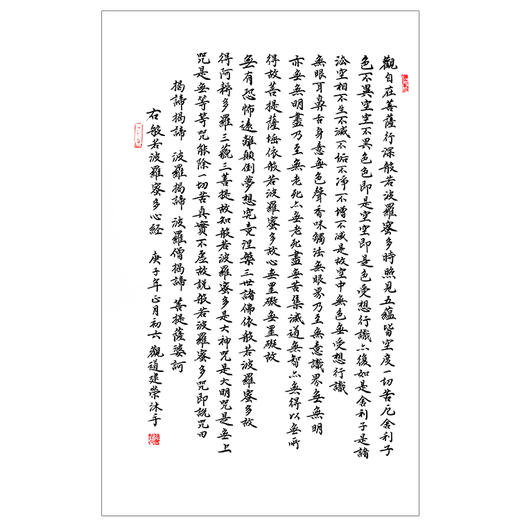 觀自在菩薩行深般若波羅蜜多時照見五蘊皆空度一切苦厄舍利子
色不異空空不異色色即是空空即是色受想行識亦復如是舍利子是諸
法空相不生不滅不垢不淨不增不減是故空中無色無受想行識
無眼耳鼻舌身意無色聲香味觸法無眼界乃至無意識界無無明
亦無無明盡乃至無老死亦無老死盡無苦集滅道無智亦無得以無所
得故菩提薩埵依般若波羅蜜多故心無罣礙無罣礙故
無有恐怖遠離顛倒夢想究竟涅槃三世諸佛依般若波羅蜜多故
得阿耨多羅三藐三菩提故知般若波羅蜜多是大神咒是大明咒是無上
咒是無等等咒能除一切苦真實不虛故說般若波羅蜜多咒即說咒曰
揭諦揭諦 波羅揭諦 波羅僧揭諦 菩提薩婆訶
右般若波羅蜜多心經 庚子年正月初六觀道建榮沐手